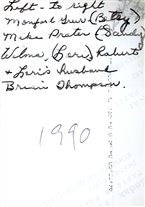 Left - to right
Monford Guer (Betsy)
Mike Prater (Sandy)
Wilma, (Leri) Robert
+ Leri's Husband
Brian Thompson.
1990